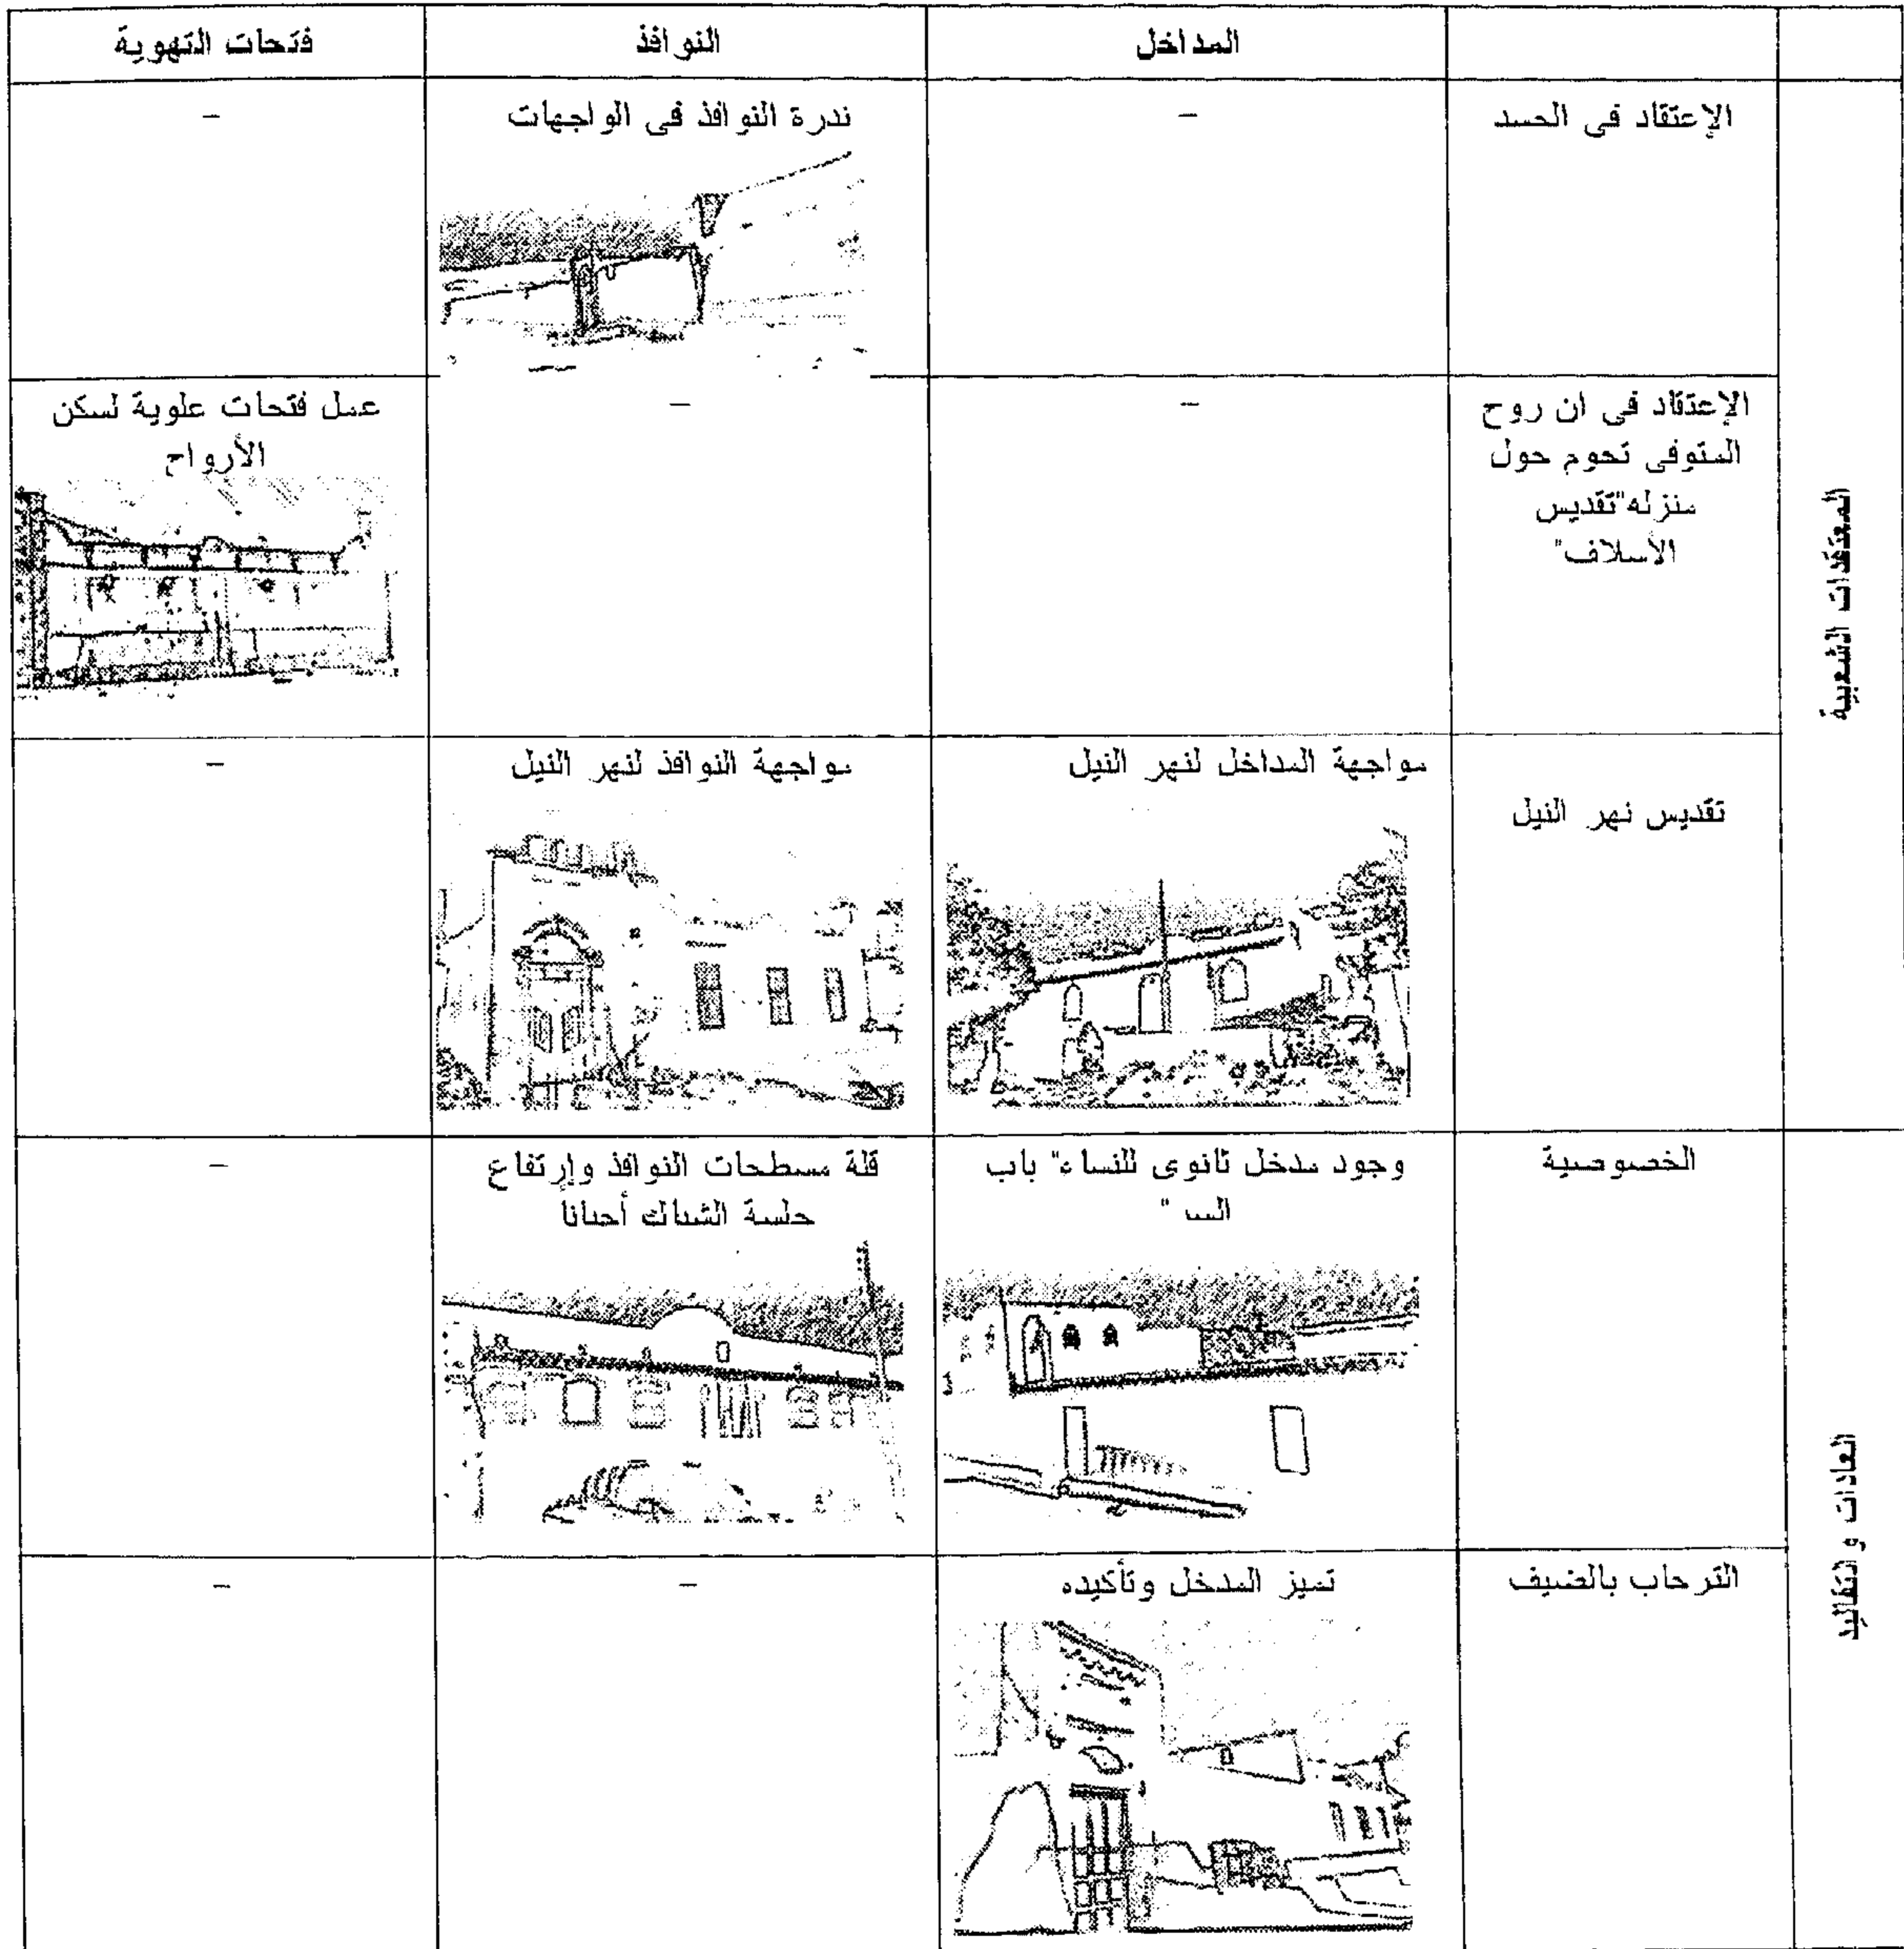 المداخل
النوافذ
فتحات التهوية
المعتقدات الشعبية
الإعتقاد فى الحسد
–
ندرة النوافذ فى الواجهات
–
الإعتقاد فى ان روح
المتوفى تحوم حول
منزله "تقديس
الأسلاف"
–
–
عمل فتحات علوية لسكن
الأرواح
تقديس نهر النيل
مواجهة المداخل لنهر النيل
مواجهة النوافذ لنهر النيل
–
العادات و التقاليد
الخصوصية
وجود مدخل ثانوى للنساء" باب
"
قلة مسطحات النوافذ وإرتفاع
جلسة الشباك أحياناً
–
الترحاب بالضيف
تميز المدخل وتأكيده
–
–